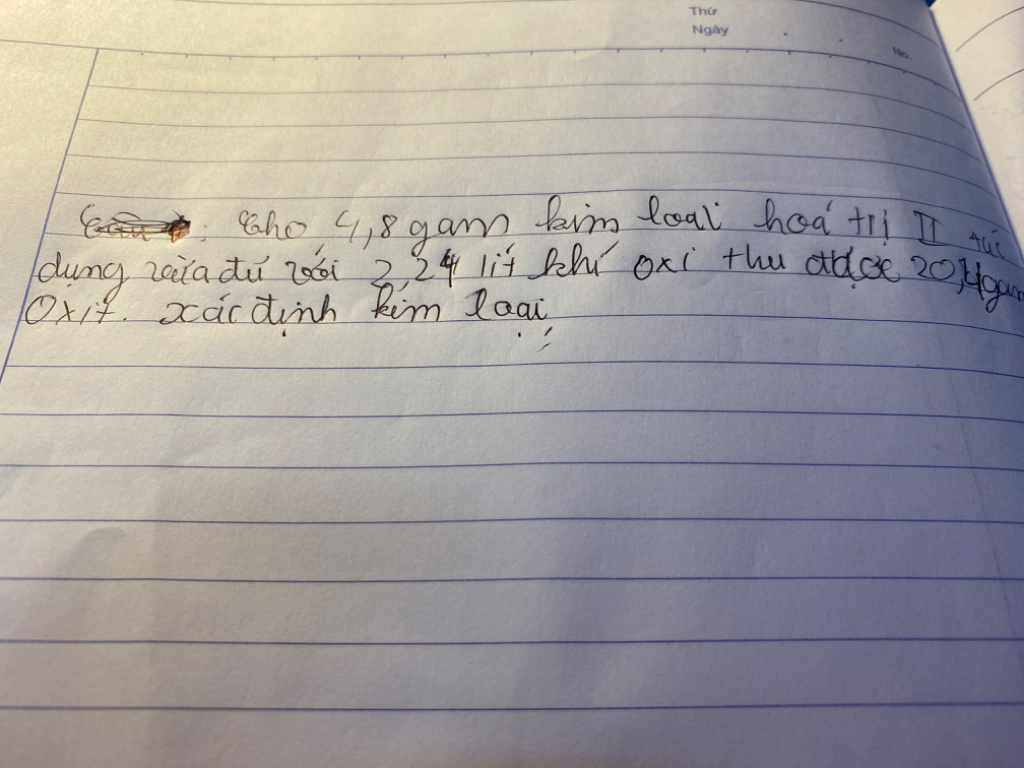 Thứ
Ngày
No.
Cho 4,8gam kim loại hoá trị II tác
dụng vừa đủ với 2,24 lít khí oxi thu được 20,4gam
Oxit. xác định kim loại